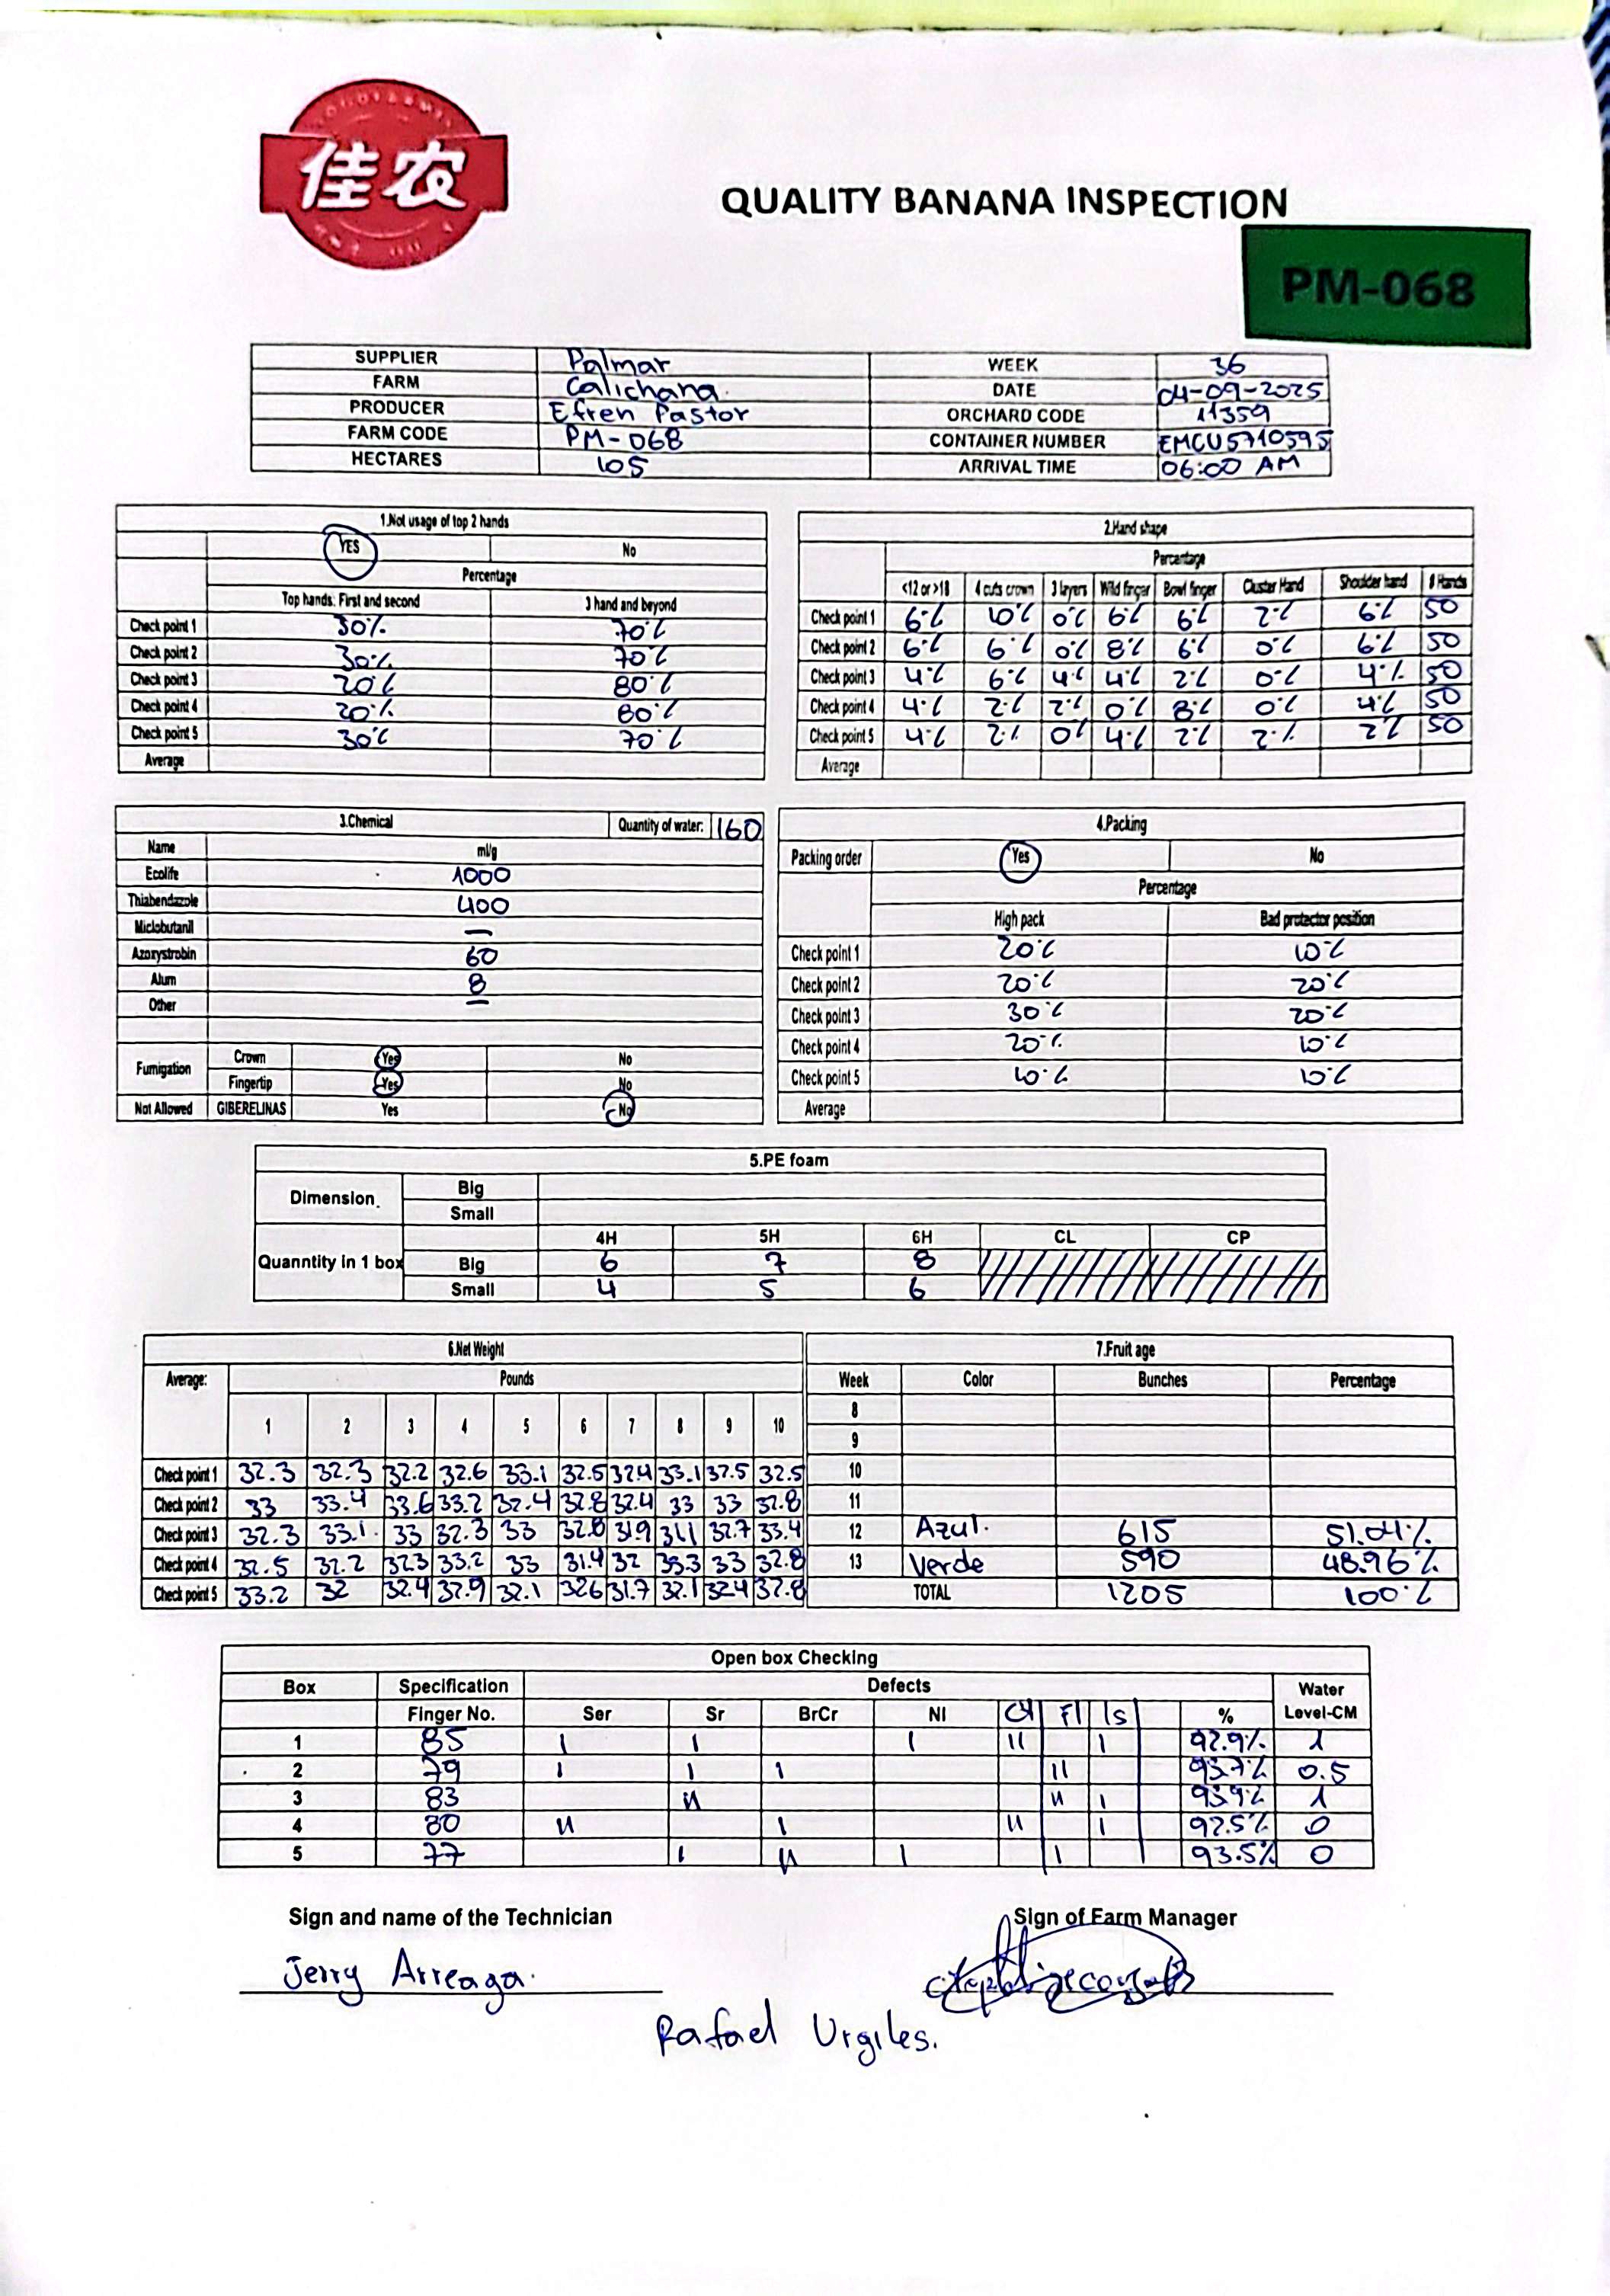 佳农
QUALITY BANANA INSPECTION
PM-068
SUPPLIER Palmar WEEK 36
FARM Calichana. DATE 04-09-2025
PRODUCER Efren Pastor ORCHARD CODE 11359
FARM CODE PM-068 CONTAINER NUMBER EMCU5710595
HECTARES 105 ARRIVAL TIME 06:00 AM
1.Not usage of top 2 hands
YES No
Percentage
Top hands: First and second 3 hand and beyond
Check point 1 30% 70%
Check point 2 30% 70%
Check point 3 20% 80%
Check point 4 20% 80%
Check point 5 30% 70%
Average
2.Hand shape
Percentage
<12 or >18 4 cuts crown 3 layers Wild finger Bowl finger Cluster Hand Shoulder hand # Hands
Check point 1 6% 10% 0% 6% 6% 2% 6% 50
Check point 2 6% 6% 0% 8% 6% 0% 6% 50
Check point 3 4% 6% 4% 4% 2% 0% 4% 50
Check point 4 4% 2% 2% 0% 8% 0% 4% 50
Check point 5 4% 2% 0% 4% 2% 2% 2% 50
Average
3.Chemical Quantity of water: 160
Name ml/g
Ecolife 1000
Thiabendazole 400
Miclobutanil —
Azoxystrobin 60
Alum 8
Other —
Fumigation Crown Yes No
Fingertip Yes No
Not Allowed GIBERELINAS Yes No
4.Packing
Packing order Yes No
Percentage
High pack Bad protector position
Check point 1 20% 10%
Check point 2 20% 20%
Check point 3 30% 20%
Check point 4 20% 10%
Check point 5 10% 10%
Average
5.PE foam
Dimension. Big
Small
4H 5H 6H CL CP
Quanntity in 1 box Big 6 7 8
Small 4 5 6
6.Net Weight
Average: Pounds
1 2 3 4 5 6 7 8 9 10
Check point 1 32.3 32.3 32.2 32.6 33.1 32.5 32.4 33.1 32.5 32.5
Check point 2 33 33.4 33.6 33.2 32.4 32.8 32.4 33 33 32.8
Check point 3 32.3 33.1 33 32.3 33 32.8 31.9 31.1 32.7 33.4
Check point 4 32.5 32.2 32.3 33.2 33 31.4 32 33.3 33 32.8
Check point 5 33.2 32 32.4 32.9 32.1 32.6 31.7 32.1 32.4 32.8
7.Fruit age
Week Color Bunches Percentage
8
9
10
11
12 Azul. 615 51.04%
13 Verde 590 48.96%
TOTAL 1205 100%
Open box Checking
Box Specification Defects Water
Finger No. Ser Sr BrCr NI CH Fl Is % Level-CM
1 85 I I I II I 92.9% 1
2 79 I I I II 93.7% 0.5
3 83 II II I 93.9% 1
4 80 II I II I 92.5% 0
5 77 I II I I 93.5% 0
Sign and name of the Technician Sign of Farm Manager
Jerry Arreaga.
Rafael Urgiles.